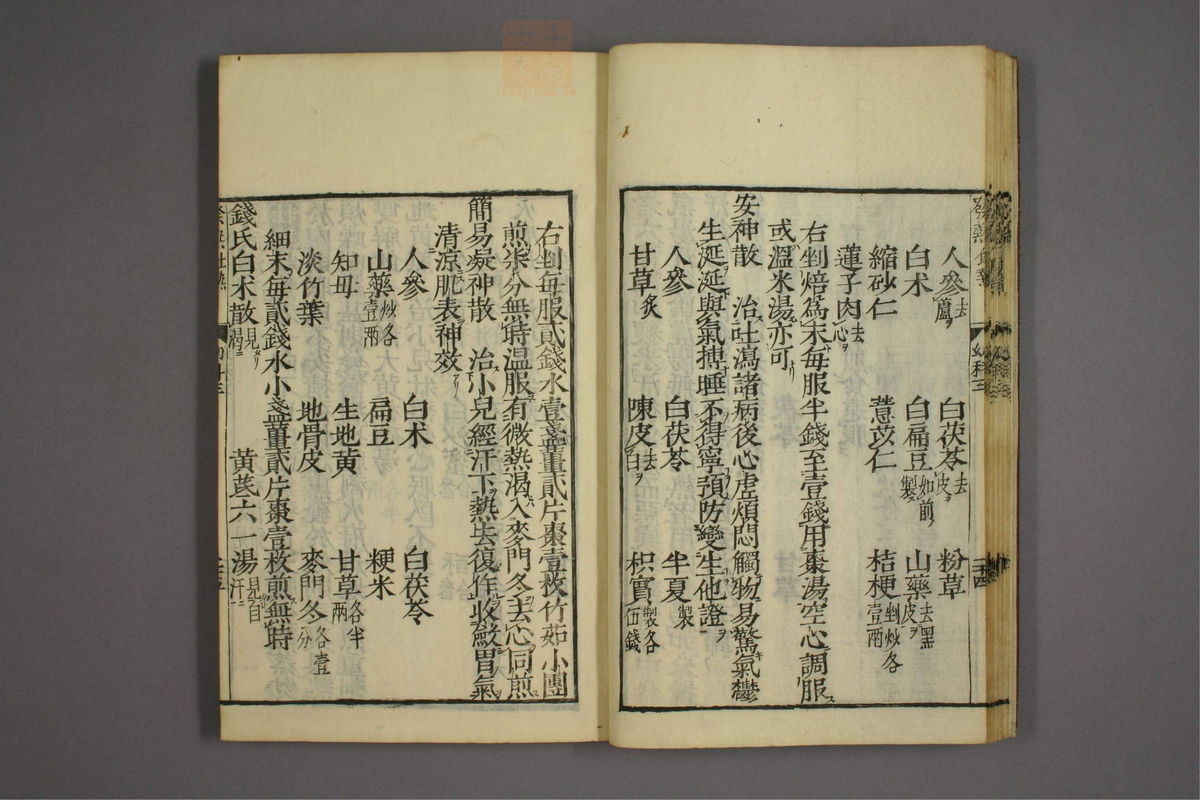 人參去蘆ヲ 白茯苓去皮ヲ 粉草
白术 白扁豆如前製ヲ 山藥去黒皮ヲ
縮砂仁 薏苡仁 桔梗剉炒各壹兩
蓮子肉去心ヲ
右剉焙爲末毎服半錢至壹錢用棗湯空心調服
或溫米湯亦可
安神散 治吐瀉諸病後心虛煩悶觸物易驚氣欝
生涎涎與氣搏睡不得寧預防變生他證
人參 白茯苓 半夏製
甘草炙 陳皮去白ヲ 枳實製各伍錢
右剉毎服貳錢水壹盞薑貳片棗壹枚竹茹小團
煎柒分無時温服有微熱渴入麥門冬去心同煎
簡易凝神散 治小兒經汗下熱去復作收斂胃氣
清涼肌表神效
人參 白术 白茯苓
山藥炒各壹兩 扁豆 粳米
知母 生地黄 甘草各半兩
淡竹葉 地骨皮 麥門冬各壹分
細末毎貳錢水小盞薑貳片棗壹枚煎無時
錢氏白术散見渴 黃芪六一湯見自汗